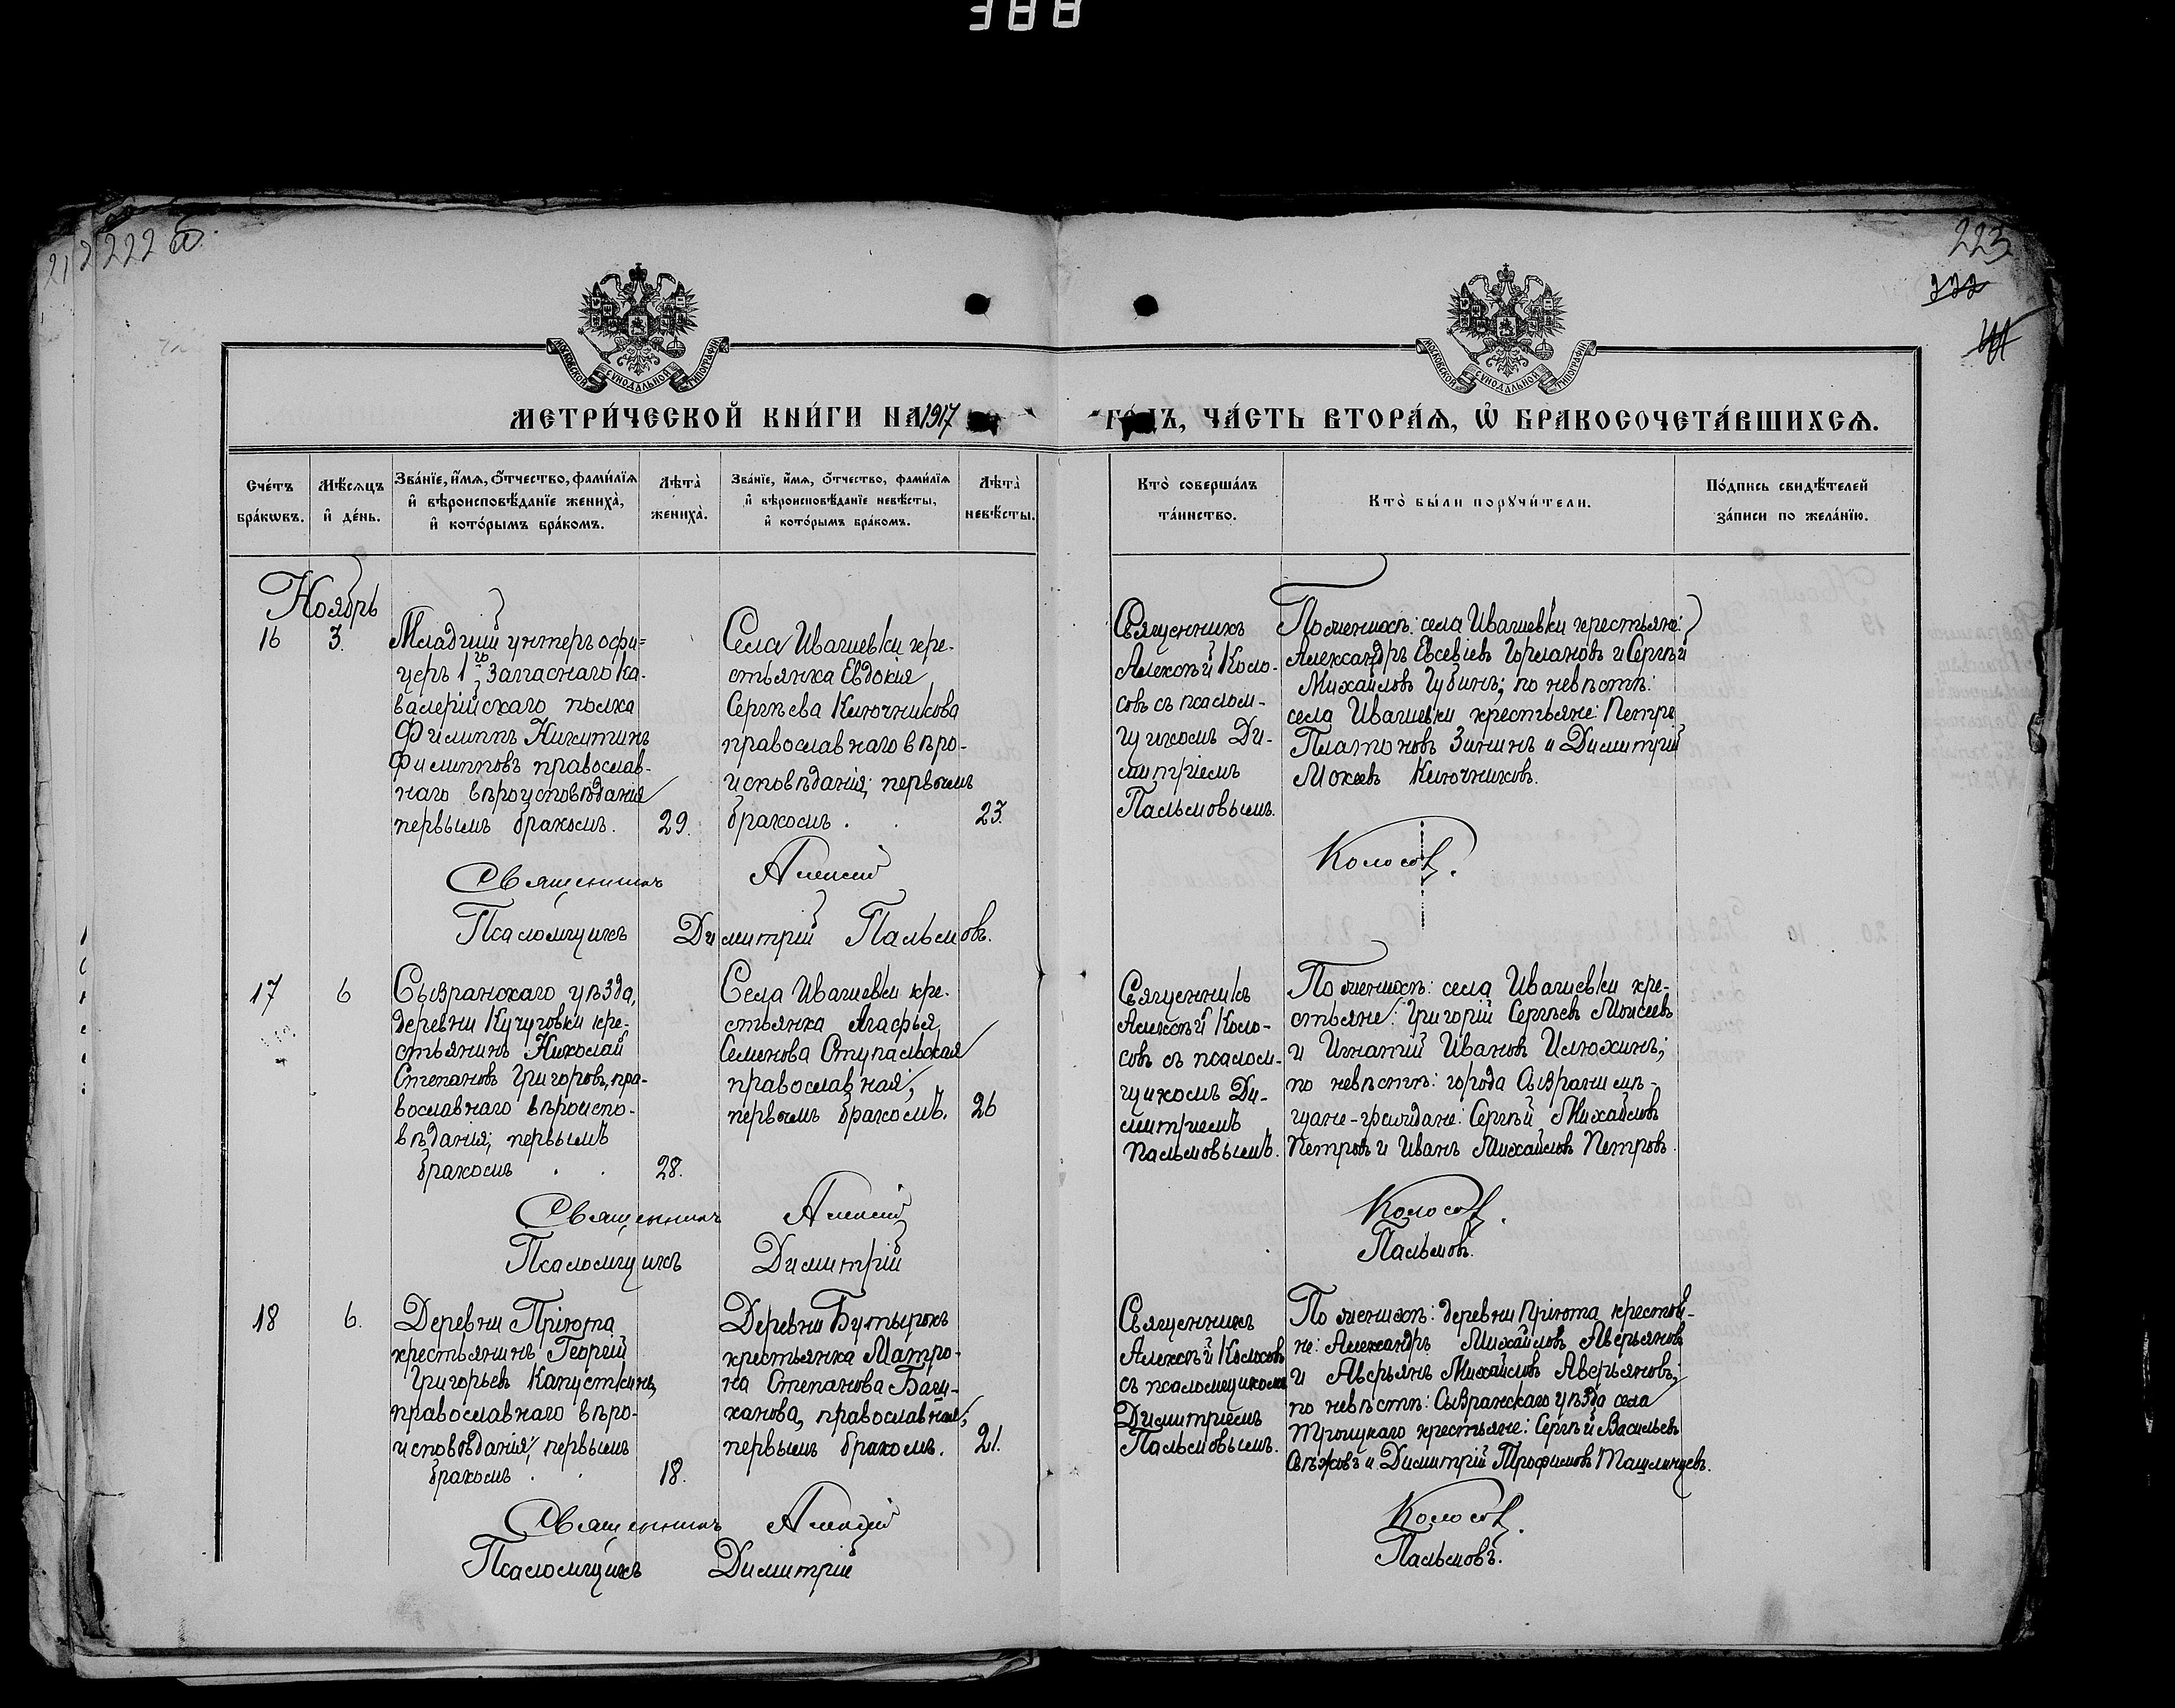 388
222 б.
223
222
МОСКОВСКОЙ СѴНОДАЛЬНОЙ ТИПОГРАФІИ
МОСКОВСКОЙ СѴНОДАЛЬНОЙ ТИПОГРАФІИ
МЕТРИ́ЧЕСКОЙ КНИ́ГИ НА 1917
ГО́ДЪ, ЧА́СТЬ ВТОРА́Ѧ, Ѡ҆ БРАКОСОЧЕТА́ВШИХСѦ.
Сче́тъ бра́кωвъ.
Мѣ́сѧцъ и҆ де́нь.
Зва́нїе, и҆́мѧ, ѻ҆́тчество, фами́лїѧ и҆ вѣроисповѣ́данїе жениха̀, и҆ кото́рымъ бра́комъ.
Лѣ́та̀ жениха̀.
Зва́нїе, и҆́мѧ, ѻ҆́тчество, фами́лїѧ и҆ вѣроисповѣ́данїе невѣ́сты, и҆ кото́рымъ бра́комъ.
Лѣ́та̀ невѣ́сты.
Кто̀ соверша́лъ та́инство.
Кто̀ бы́ли порꙋчи́тели.
По́дпись свидѣ́телей за́писи по жела́нїю.
Ноябрь
16
3.
Младшій унтеръ офи=
церъ 1го Запаснаго ка-
валерійскаго полка
Филиппъ Никитинъ
Филипповъ православ-
наго вѣроисповѣданія
первымъ бракомъ.
29.
Села Ивашевки кре-
стьянка Евдокія
Сергѣева Ключникова
православнаго вѣро-
исповѣданія; первымъ
бракомъ.
23.
Священникъ
Алексѣй Коло-
совъ съ псалом-
щикомъ Ди-
митріемъ
Пальмовымъ.
По женихѣ: села Ивашевки крестьяне:
Александръ Евсевіевъ Горлановъ и Сергѣй
Михайловъ Губинъ; по невѣстѣ:
села Ивашевки крестьяне: Петръ
Платоновъ Зининъ и Димитрій
Мокеевъ Ключниковъ.
Священникъ Алексій Колосовъ.
Псаломщикъ Димитрій Пальмовъ.
17
6
Сызранскаго уѣзда,
деревни Кучуговки кре-
стьянинъ Николай
Степановъ Григоровъ, пра-
вославнаго вѣроиспо-
вѣданія; первымъ
бракомъ
28.
Села Ивашевки кре-
стьянка Агафья
Семенова Ступальская
православная;
первымъ бракомъ.
26
Священникъ
Алексѣй Коло-
совъ съ псалом-
щикомъ Ди-
митріемъ
Пальмовымъ.
По женихѣ: села Ивашевки кре-
стьяне: Григорій Сергѣевъ Моисеевъ
и Игнатій Ивановъ Илюхинъ;
по невѣстѣ: города Сызрани мѣ-
щане-граждане: Сергѣй Михайловъ
Петровъ и Иванъ Михайловъ Петровъ.
Священникъ Алексій Колосовъ.
Псаломщикъ Димитрій Пальмовъ.
18
6.
Деревни Пріюта
крестьянинъ Георгій
Григорьевъ Капусткинъ,
православнаго вѣро-
исповѣданія, первымъ
бракомъ
18.
Деревни Бутырокъ
крестьянка Матро-
на Степанова
православная;
первымъ бракомъ.
21.
Священникъ
Алексѣй Колосовъ
съ псаломщикомъ
Димитріемъ
Пальмовымъ.
По женихѣ: деревни Пріюта крестья-
не: Александръ Михайловъ Аверьяновъ
и Аверьянъ Михайловъ Аверьяновъ;
по невѣстѣ: Сызранскаго уѣзда села
Троицкаго крестьяне: Сергѣй Васильевъ
и Димитрій Трофимовъ Ташлинцевъ.
Священникъ Алексій Колосовъ.
Псаломщикъ Димитрій Пальмовъ.